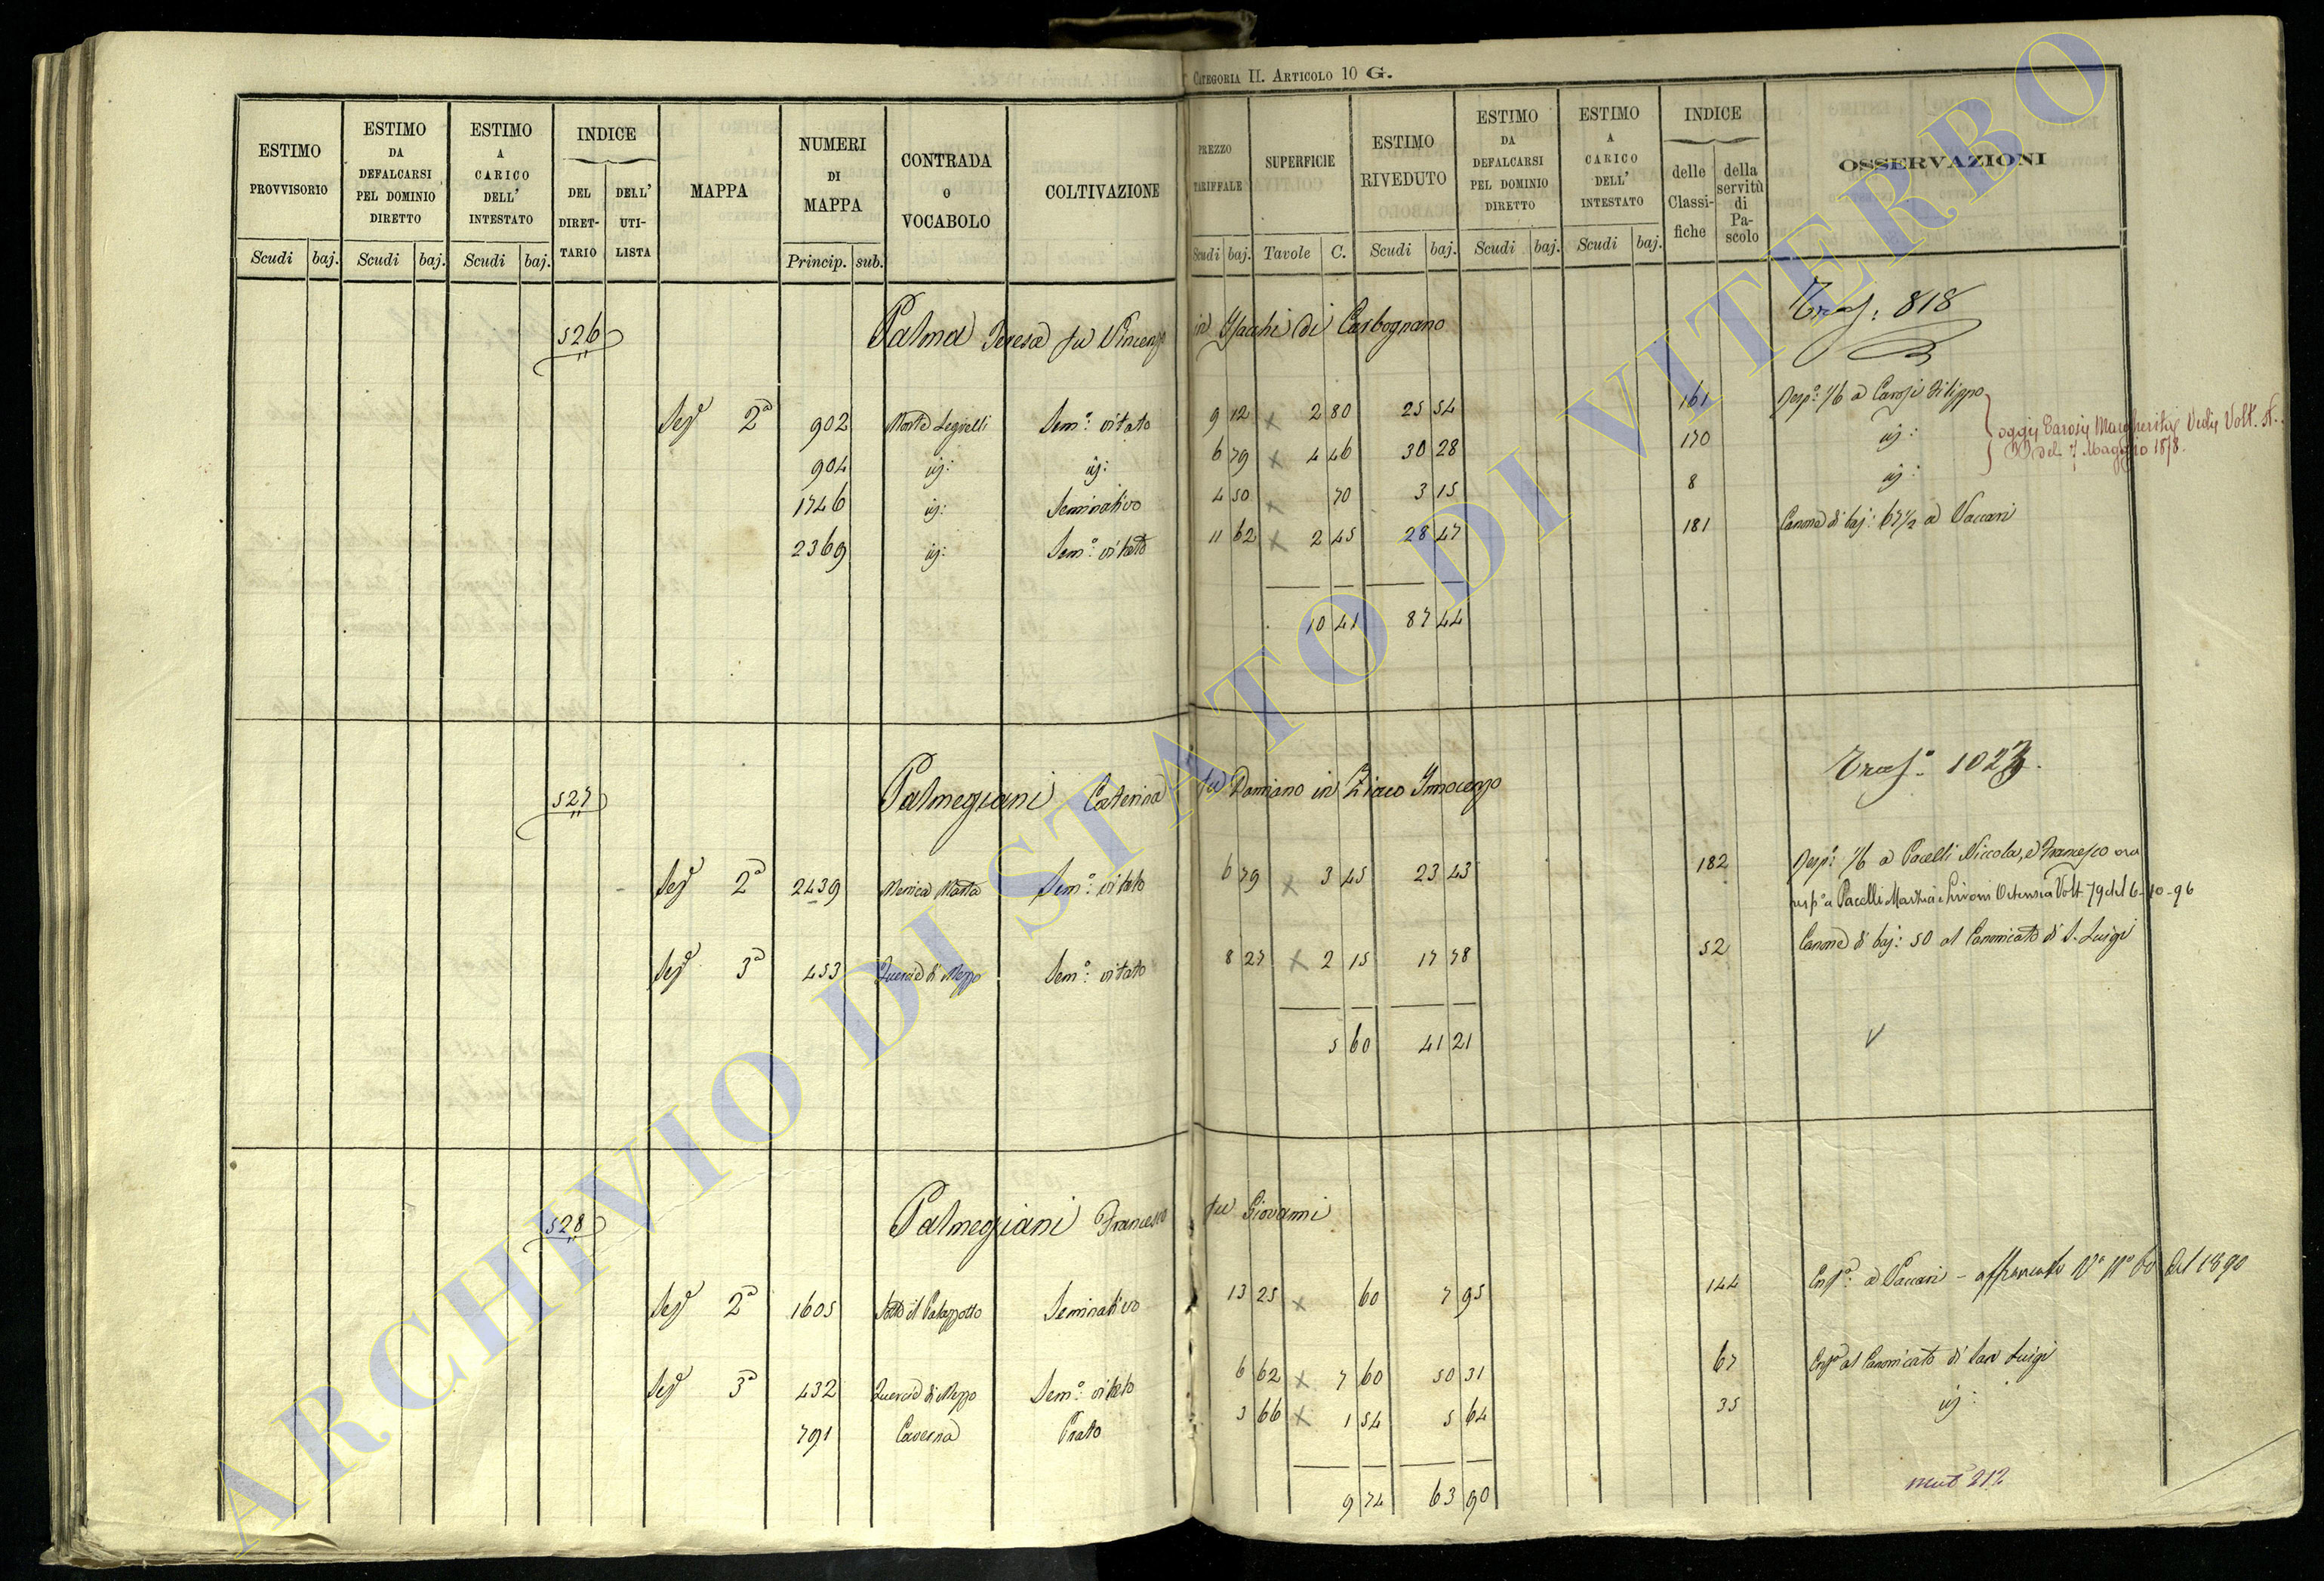 CATEGORIA II. ARTICOLO 10 G.
ESTIMO PROVVISORIO
ESTIMO DA DEFALCARSI PEL DOMINIO DIRETTO
ESTIMO A CARICO DELL' INTESTATO
INDICE
DEL DIRET-TARIO
DELL' UTI-LISTA
MAPPA
NUMERI DI MAPPA
CONTRADA o VOCABOLO
COLTIVAZIONE
PREZZO TARIFFALE
SUPERFICIE
ESTIMO RIVEDUTO
ESTIMO DA DEFALCARSI PEL DOMINIO DIRETTO
ESTIMO A CARICO DELL' INTESTATO
INDICE
delle Classi-fiche
della servitù di Pa-scolo
OSSERVAZIONI
Scudi baj. Scudi baj. Scudi baj. Princip. sub. Scudi baj. Tavole C. Scudi baj. Scudi baj. Scudi baj.
526 Palma Teresa fu Vincenzo in Ysachi di Carbognano Trasf: 818
Sez 2a 902 Sem: vitato 9 12 x 2 80 25 54 161 Resp: 1/6 a Carosi Filippo
904 iij: iij: 6 79 x 4 46 30 28 170 iij:
1746 iij: Seminativo 4 50 x 70 3 15 8 iij:
oggi Carosi Margherita Vedi Volt. N.
33 del 7 Maggio 1878.
2369 iij: Sem: vitato 11 62 x 2 45 28 47 181 Canone di baj: 67 1/2 a Vaccari
10 41 87 44
527 Palmegiani Caterina fu Damiano in Ziaco Innocenzo Trasf: 1023.
Sez 2a 2439 Sem: vitato 6 79 x 3 45 23 43 182 Resp: 1/6 a Pacelli Niccola, e Francesco ora
resp a Pacelli Ortensia Volt. 79 del 6-10-96
Sez 3a 453 Quercia di Mezzo Sem: vitato 8 27 x 2 15 17 78 52 Canone di baj: 50 al Canonicato di S. Luigi
5 60 41 21
528 Palmegiani Francesco fu Giovanni
Sez 2a 1605 Sotto il Palazzotto Seminativo 13 25 x 60 7 95 144 Enf: a Vaccari - affrancato del 1890
Sez 3a 432 Quercia di Mezzo Sem: vitato 6 62 x 7 60 50 31 67 Enf al Canonicato di San Luigi
791 Caverna Prato 3 66 x 1 54 5 64 35 iij:
9 74 63 90
mut 212
ARCHIVIO DI STATO DI VITERBO